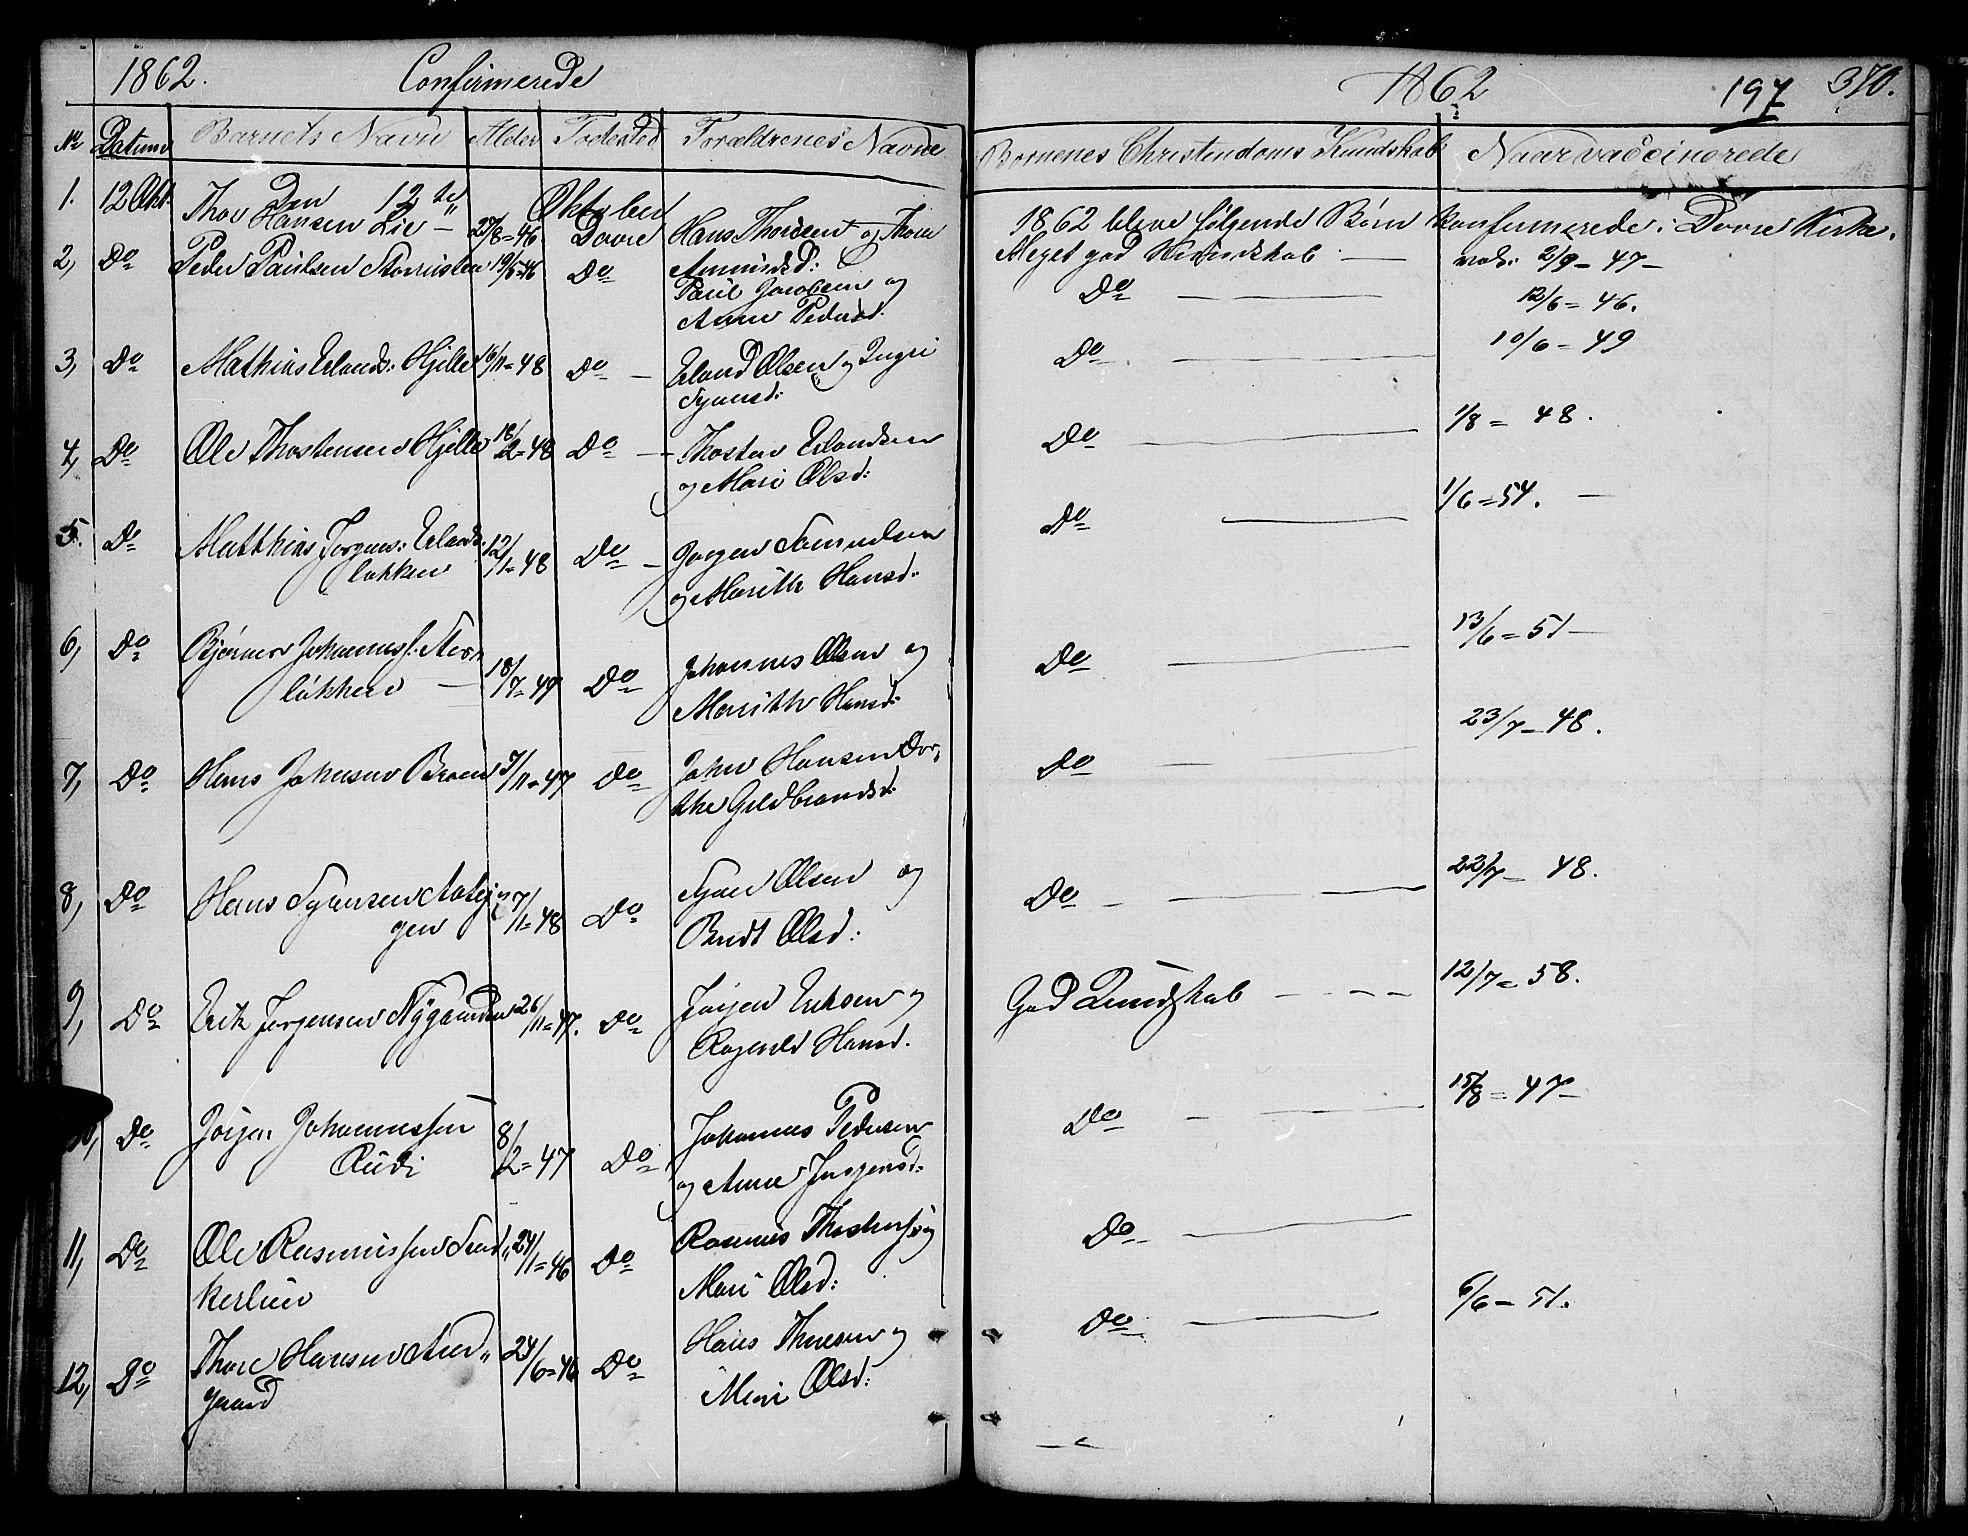 1862. Confirmerede
1862 197 370.
No Datum Barnets Navn Alder Fødested Forældrenes Navne
Børnenes Christendoms Kundskab Naar vaccinerede
Den 12te Oktober
1862 bleve følgende Børn konfirmerede i Dovre Kirke.
1. 12 Okt. Thor Hansen Lie – 27/8=46 Dovre Hans Thordsen og Thone
Amundsd: Meget god Kundskab — vak: 2/9–47–
2, Do Peder Paulsen 19/5=46 Do Paul Jacobsen og
Anne Pedersd. Do — 12/6=46.
3, Do Mathias Erlands: Hjelle 16/11=48 Do – Erland Olsen og Ingri
Synesd: Do — 10/6–49
4, Do Ole Thostensen Hjelle 18/2=48 Do – Thosten Erlandsen
og Mari Olsd: Do — 1/8= 48.
5. Do Matthias Jørgens: Erlands
løkken 12/1=48 Do – Jørgen
og Marith Hansd: Do — 1/6=54. –
6, Do Johanness:
løkken — 18/7=49 Do Johannes Olsen og
Marith Hansd: Do — 13/6=51–
7, Do Hans Johnsen 3/11=47 Do John Hansen Dor,
the Guldbrandsd: Do — 23/7–48.
8, Do Hans Synesen
gen 7/1=48 Do Olsen og
Brudt Olsd: Do — 22/7– 48.
9, Do Erik Jørgensen Nÿgaarden 26/11=47. Do Jørgen Eriksen og
Ragnild Hansd. God Kundskab — 12/7=58.
10, Do Jørgen Johannessen
Rudi 8/2=47 Do Johannes Pedersen
og Anne Jørgensd: Do — 15/8=47–
11, Do Ole Rasmussen
24/1=46 Do Rasmus Thostens: og
Mari Olsd: Do —
12, Do Thore Hansen
gaard 24/6=46 Do Hans Thoresen og
Mari Olsd: Do — 6/6–51.